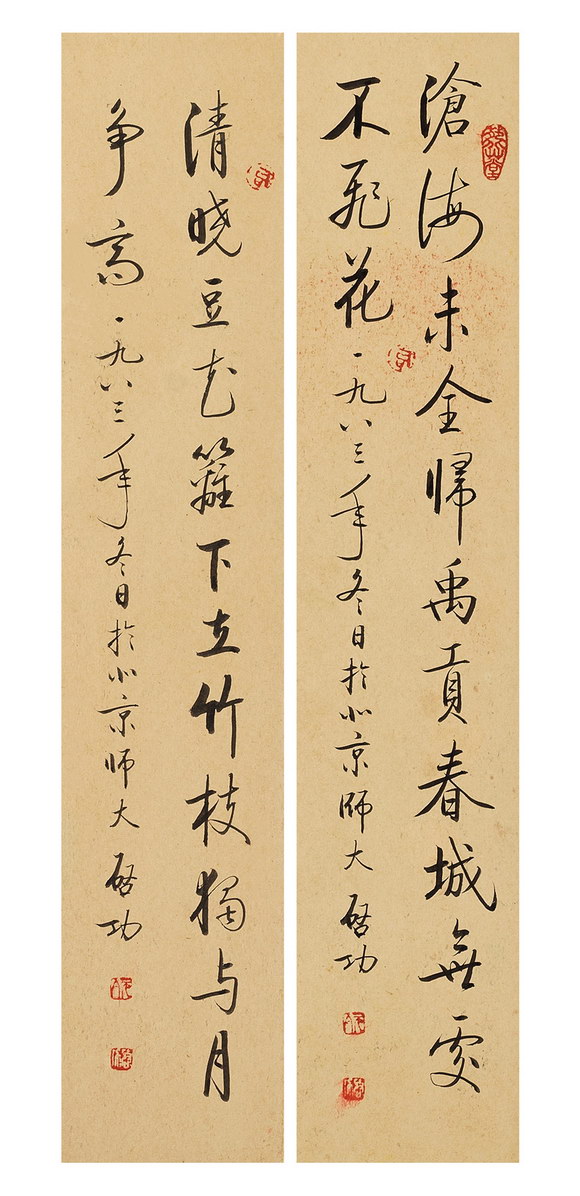 滄海未全歸禹貢春城無處
不飛花 一九八三年冬日於北京師大 啓功
清晓豆花籬下立竹枝獨与月
争高 一九八三年冬日於北京师大 啓功